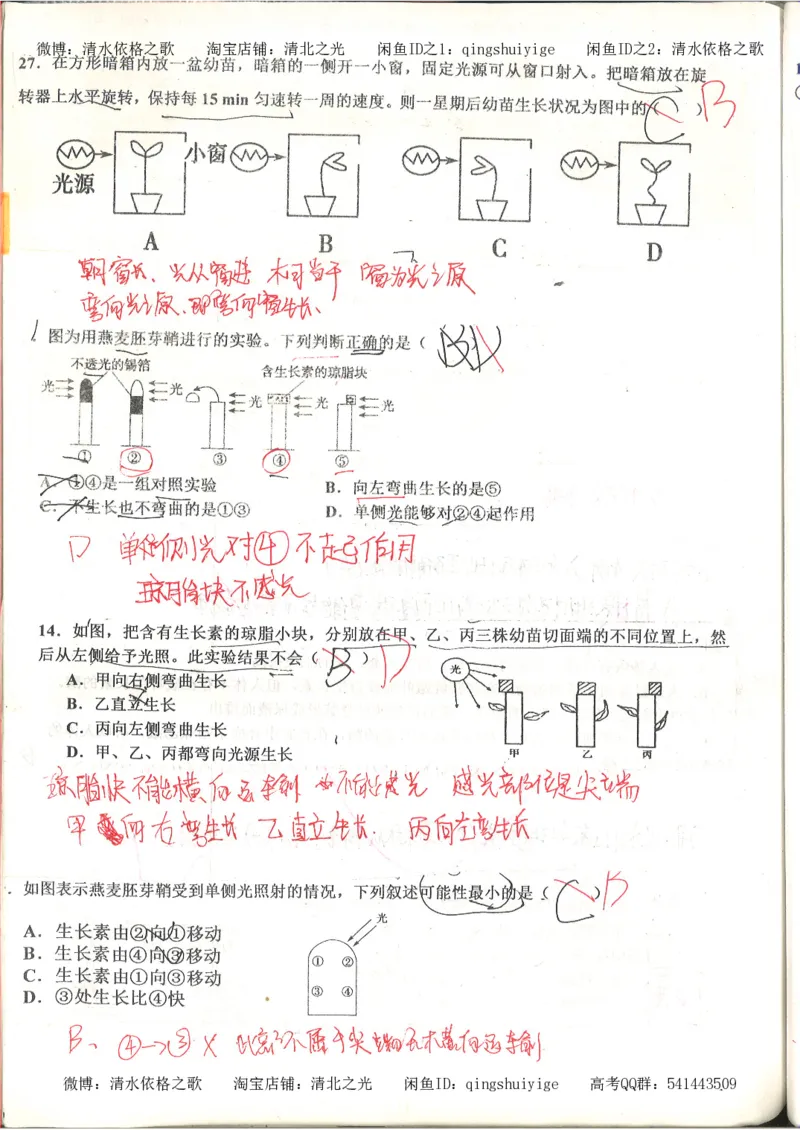 微博：清水依格之歌　　淘宝店铺：清北之光　　闲鱼ID之1：qingshuiyige　　闲鱼ID之2：清水依格之歌
27．在方形暗箱内放一盆幼苗，暗箱的一侧开一小窗，固定光源可从窗口射入。把暗箱放在旋
转器上水平旋转，保持每 15 min 匀速转一周的速度。则一星期后幼苗生长状况为图中的（ C ） B
小窗
光源
A B C D
朝窗长、光从窗进 相当于 窗为光之源
弯向光之源、即弯向窗生长、
图为用燕麦胚芽鞘进行的实验。下列判断正确的是（
不透光的锡箔
含生长素的琼脂块
光 光 光 光 光
① ② ③ ④ ⑤
A．①④是一组对照实验　　B．向左弯曲生长的是⑤
C．不生长也不弯曲的是①③　　D．单侧光能够对②④起作用
D 单侧光对④不起作用
琼脂块不感光
14．如图，把含有生长素的琼脂小块，分别放在甲、乙、丙三株幼苗切面端的不同位置上，然
后从左侧给予光照。此实验结果不会（ B ） D
光
A．甲向右侧弯曲生长
B．乙直立生长
C．丙向左侧弯曲生长
D．甲、乙、丙都弯向光源生长
甲 乙 丙
琼脂块不能横向运输 也不能感光 感光部位是尖端
甲向右弯生长 乙直立生长 丙向左弯生长
．如图表示燕麦胚芽鞘受到单侧光照射的情况，下列叙述可能性最小的是（ C ） B
光
A．生长素由②向①移动
B．生长素由④向③移动
C．生长素由①向③移动
D．③处生长比④快
① ②
③ ④
B、④→③ X 此密不属于尖端 无横向运输
微博：清水依格之歌　　淘宝店铺：清北之光　　闲鱼ID：qingshuiyige　　高考QQ群：541443509